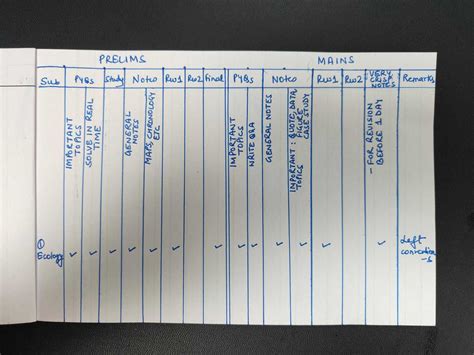 PRELIMS MAINS
Sub PYQs Study Notes Rev1 Rev2 Final PYQs Notes Rev1 Rev2 VERY CRISP NOTES Remarks
IMPORTANT TOPICS
SOLVE IN REAL TIME
GENERAL NOTES
MAPS, CHRONOLOGY ETC
IMPORTANT TOPICS
WRITE Q&A
GENERAL NOTES
IMPORTANT : QUOTE, DATA, FIGURE CASE STUDY TOPICS
- FOR REVISION BEFORE 1 DAY
① Ecology ✓ ✓ ✓ ✓ ✓ ✓ ✓ ✓ ✓ ✓ ✓ ✓ ✓ Left